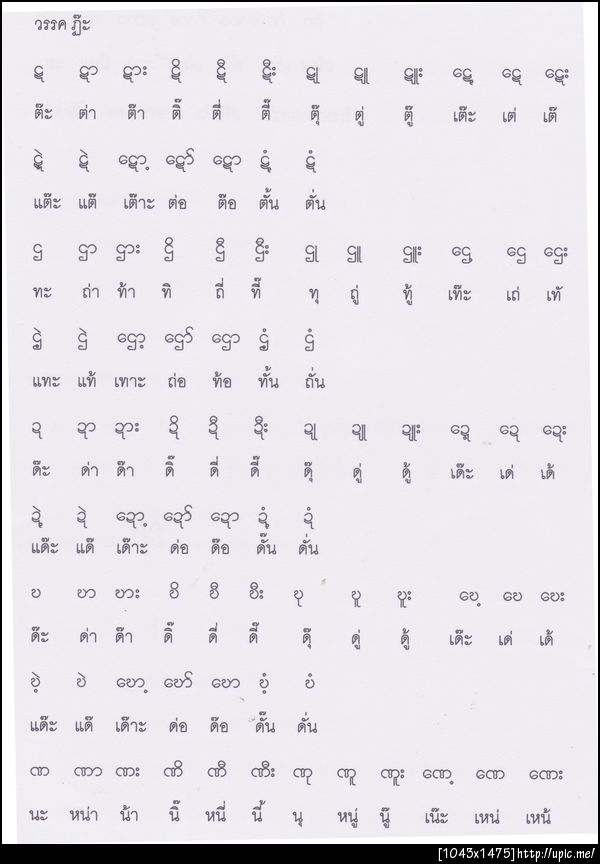 วรรค ฏ๊ะ
ဋ ဋာ ဋား ဋိ ဋီ ဋီး ဋု ဋူ ဋူး ဋေ့ ဋေ ဋေး
ต๊ะ ต่า ต๊า ติ๊ ตี่ ตี๊ ตุ๊ ตู่ ตู๊ เต๊ะ เต่ เต๊
ဋဲ့ ဋဲ ဋော့ ဋော် ဋော ဋံ့ ဋံ
แต๊ะ แต๊ เต๊าะ ต่อ ต๊อ ตั้น ตั่น
ဌ ဌာ ဌား ဌိ ဌီ ဌီး ဌု ဌူ ဌူး ဌေ့ ဌေ ဌေး
ทะ ถ่า ท้า ทิ ถี่ ทิ๊ ทุ ถู่ ทู้ เท๊ะ เถ่ เท้
ဌဲ့ ဌဲ ဌော့ ဌော် ဌော ဌံ့ ဌံ
แทะ แท้ เทาะ ถ่อ ท้อ ทั้น ถั่น
ဍ ဍာ ဍား ဍိ ဍီ ဍီး ဍု ဍူ ဍူး ဍေ့ ဍေ ဍေး
ด๊ะ ด่า ด๊า ดิ๊ ดี่ ดี๊ ดุ๊ ดู่ ดู้ เด๊ะ เด่ เด้
ဍဲ့ ဍဲ ဍော့ ဍော် ဍော ဍံ့ ဍံ
แด๊ะ แด๊ เด๊าะ ด่อ ด๊อ ดั๊น ดั่น
ဎ ဎာ ဎား ဎိ ဎီ ဎီး ဎု ဎူ ဎူး ဎေ့ ဎေ ဎေး
ด๊ะ ด่า ด๊า ดิ๊ ดี่ ดี๊ ดุ๊ ดู่ ดู้ เด๊ะ เด่ เด้
ဎဲ့ ဎဲ ဎော့ ဎော် ဎော ဎံ့ ဎံ
แด๊ะ แด๊ เด๊าะ ด่อ ด๊อ ดั๊น ดั่น
ဏ ဏာ ဏား ဏိ ဏီ ဏီး ဏု ဏူ ဏူး ဏေ့ ဏေ ဏေး
นะ หน่า น้า นิ๊ หนี่ นี้ นุ หนู่ นู๊ เน๊ะ เหน่ เหน้
[1043x1475]http://upic.me/